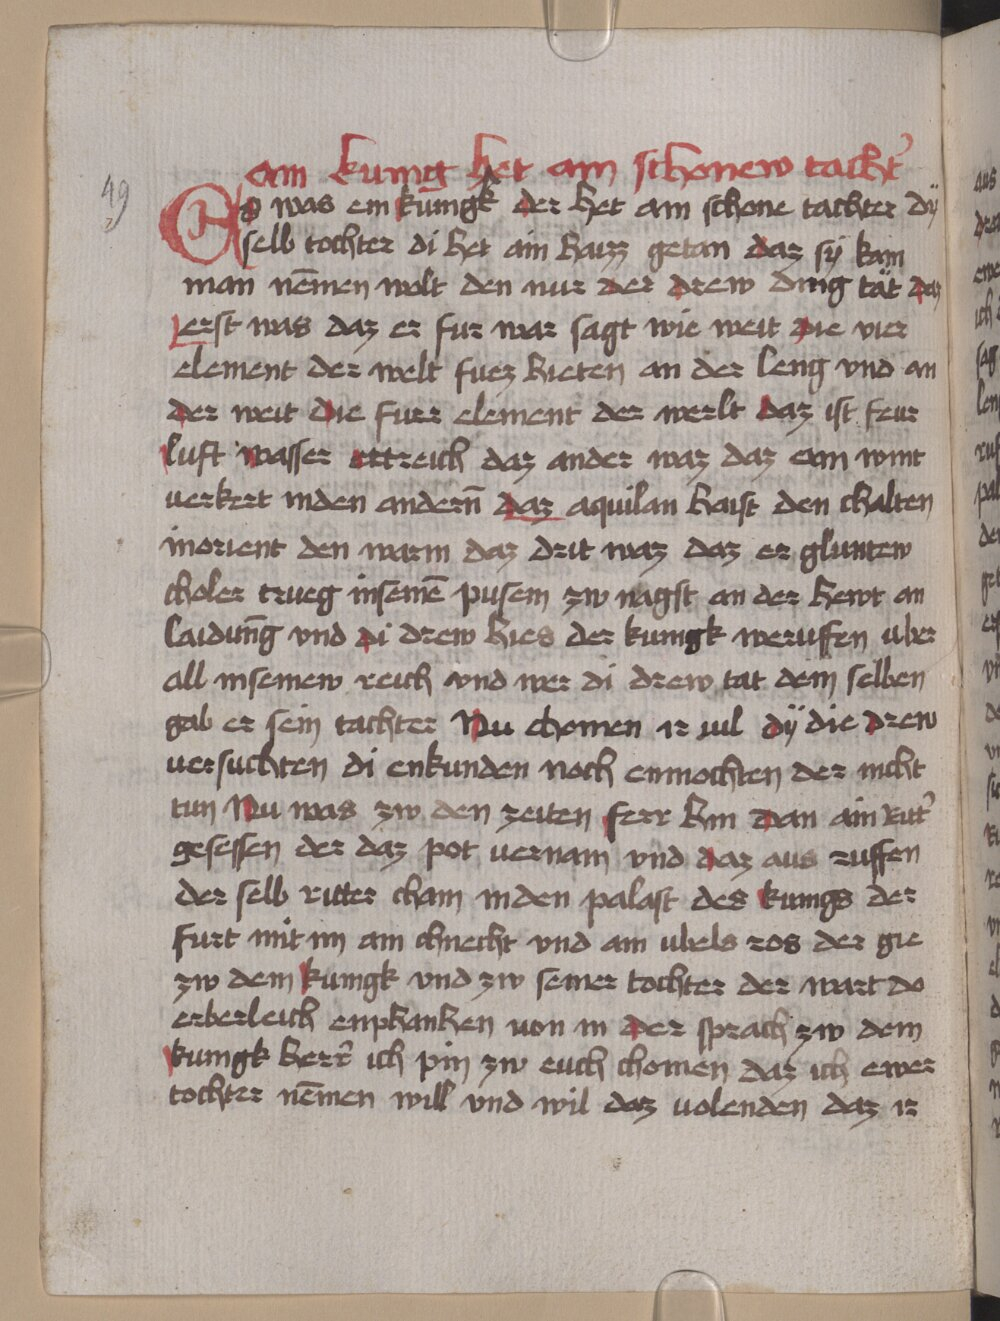 ain kunig het ain schonew tacht'
49
Es was ein kunigk der het ain schone tachter dÿ
selb tochter di het ain haizz getan daz sÿ kain
man nēmen wolt den nur der drew ding tät daz
erst was daz er fur war sagt wie weit die vier
element der welt fuez hieten an der leng vnd an
der weit die furr element der werlt daz ist feur
luft wasser ettreich daz ander waz daz ain wint
verkert inden andern̄ daz aquilan haist den chalten
inorient den warm daz drit waz daz er gluntew
choler trueg inseinē pusem zw nagst an der hewt an
laidun̄g vnd di drew hies der kunigk weruffen uber
all inseinew reich vnd wer di drew tat dem selben
gab er sein tachter Nu chomen ir uil dÿ die drew
versuchten di enkunden noch enmochten der nicht
tun Nu was zw den zeiten ferr hin dan ain ritt'
gesessen der daz pot vernam vnd daz aus ruffen
der selb ritter cham inden palast des kunigs der
furt mit im ain chnecht vnd ain ubels ros der gie
zw dem kunigk vnd zw seiner tochter der wart do
erberleich enphanhen von in der sprach zw dem
kunigk herr̄ ich pin zw euch chomen daz ich ewer
tochter nēmen will vnd wil daz volenden daz ir